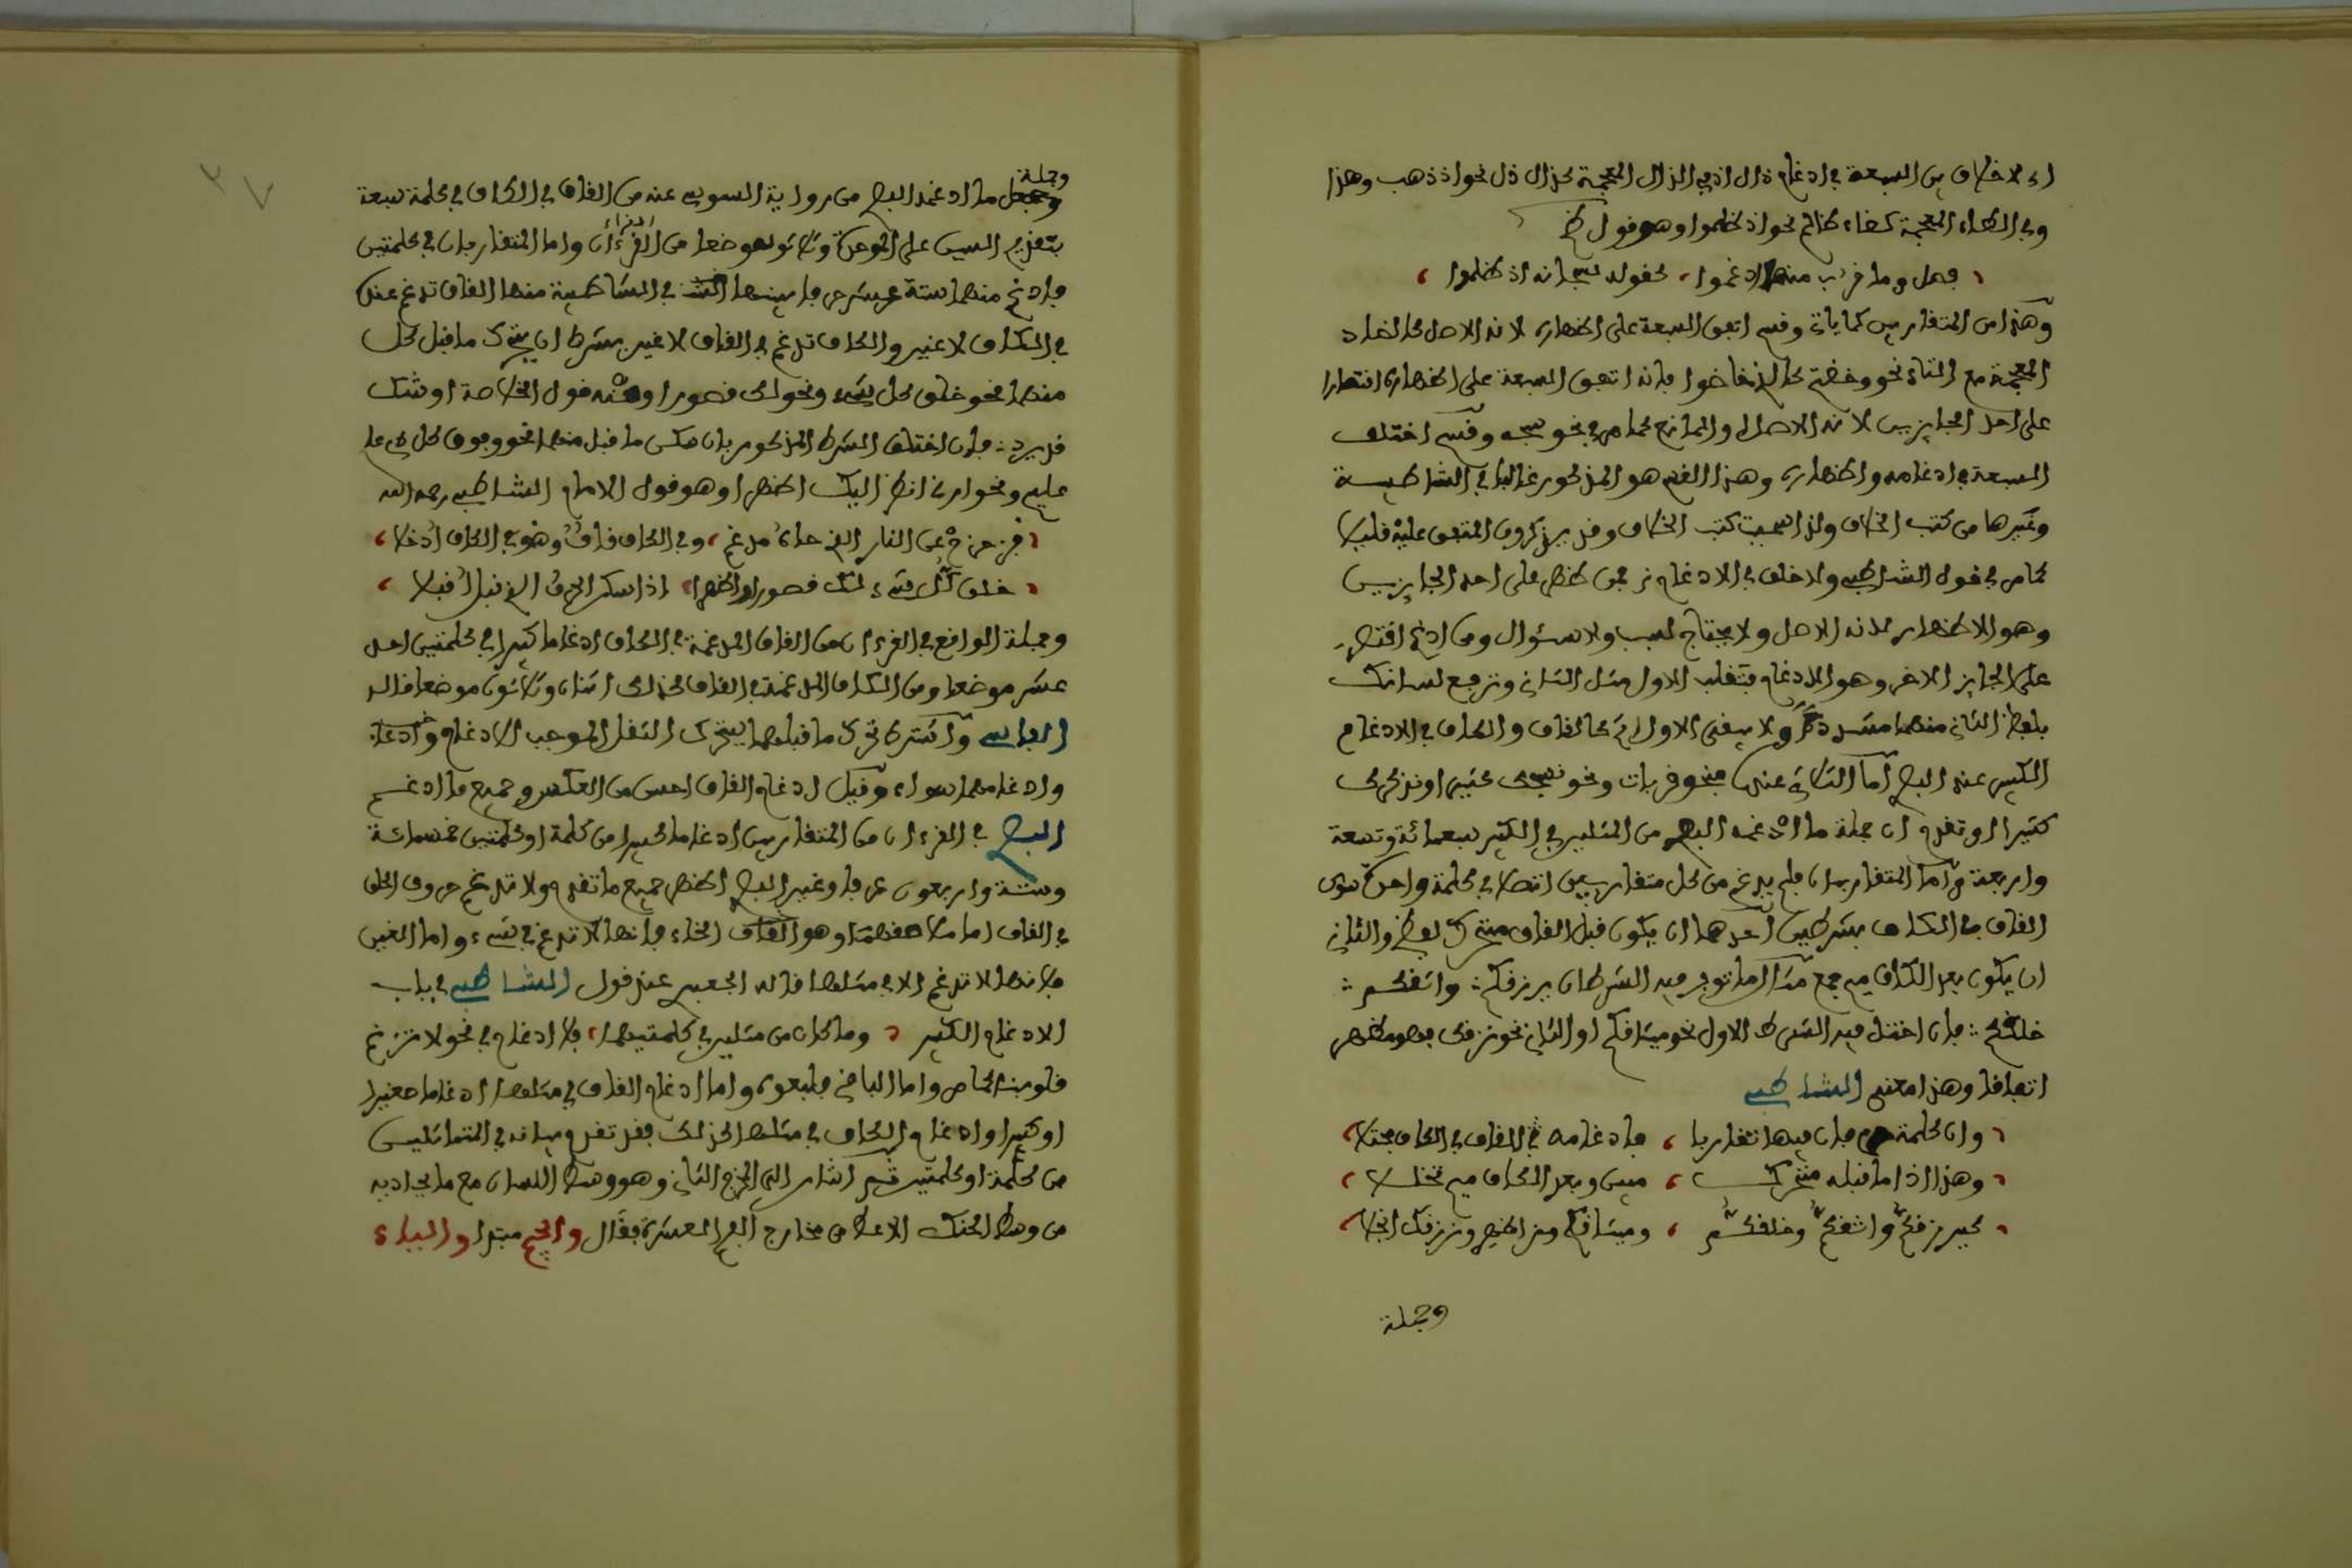 اي لا خلاف بين السبعة في ادغام ذال اذ في الذال المعجمة كذال ذل نحو اذ ذهب وهذا
وفي الظاء المعجمة كظاء ظالم نحو اذ ظلموا وهو قول
فصل وما قرب منها ادغموا، كقوله سبحانه اذ ظلموا،
وهذا من المتقاربين كما ياتي وقسم اتفق السبعة على اظهاره لانه الاصل كالضاد
المعجمة مع التاء نحو وخضتم كالذي خاضوا فانه اتفق السبعة على اظهاره اقتصارا
على احد الجايزين لانه الاصل او لمانع كما مر في نحو سبحه وقسم اختلف
السبعة في ادغامه واظهاره وهذا القسم هو المذكور غالبا في الشاطبية
وغيرها من كتب الخلاف ولذا سميت كتب الخلاف وقد يذكرون المتفق عليه قليلا
كما مر في قول الشاطبي ولا خلف في الادغام فمن اظهر فعلى احد الجايزين
وهو الاظهار لانه الاصل ولا يحتاج لسبب ولا سئوال ومن ادغم اقتصر
على الجايز الاخر وهو الادغام فتقلب الاول مثل الثاني وترجع لسانك
بلفظ الثاني منهما مشددا ولا يبقى الاول اثر كالقاف والكاف في الادغام
الكبير عند البصر اما الثلاثي عنده فنحو قربات ونحو نسبحك كثيرا ونذكرك
كثيرا او تقدم ان جملة ما ادغمه البصر من المثلين في الكبير سبعمائة وتسعة
واربعة واما المتقاربان فلم يدغم من كل متقاربين اتصلا في كلمة واحدة سوى
القاف في الكاف بشرطين احدهما ان يكون قبل القاف متحرك لفظا والثاني
ان يكون بعد الكاف ميم جمع مثال ما توفر فيه الشرطان يرزقكم: واثقكم:
خلقكم: فان اختل فيه الشرط الاول نحو ميثاقكم او الثاني نحو نرزقك فهو مظهر
اتفاقا وهذا معنى الشاطبي
وان كلمة حرفان فيها تقاربا، فادغامه في القاف في الكاف مجتلا،
وهذا اذا ما قبله متحرك، مبين وبعد الكاف ميم تخللا،
كيرزقكم واثقكم وخلقكم، وميثاقكم اظهر ونرزقك انجلا،
وجملة
وجملة ما ادغمه البصر من رواية السوسي عنه من القاف في الكاف في كلمة سبعة
بتقديم السين على الموحدة وثلاثون موضعا من القرءان واما المتقاربان في كلمتين
فادغم منهما ستة عشر حرفا بينها في الشاطبية منها القاف تدغم عنده
في الكاف لا غير والكاف تدغم في القاف لا غير بشرط ان يتحرك ما قبل كل
منهما نحو خلق كل شيء ونحو لك قصورا ومنه قول الخلاصة اوشك
قد يرد: فان اختلف الشرط المذكور بان سكن ما قبل منهما نحو وفوق كل ذي علم
عليم ونحو ارني انظر اليك اظهر او هو قول الامام الشاطبي رحمه الله
فزحزح عن النار الذي حاه مدغم، وفي الكاف قاف وهو في القاف ادخلا،
خلق كل شيء لك قصورا واظهرا، اذا سكن الحرف الذي قبل اقبلا،
وجملة الواقع في القرءان من القاف المدغمة في الكاف ادغاما كبيرا في كلمتين احد
عشر موضعا ومن الكاف المدغمة في القاف كذلك اثنان وثلاثون موضعا قاله
الفاسي واشترط تحرك ما قبلهما ليتحرك الثقل الموجب للادغام
وادغامهما سواء وقيل ادغام القاف احسن من العكس وجميع ما ادغم
البصر في القرءان من المتقاربين ادغاما كبيرا من كلمة او كلمتين خمسمائة
وستة واربعون حرفا وغير البصر اظهر جميع ما تقدم ولا تدغم حروف الحلق
في القاف اما وهو القاف الخاء فانها لا تدغم في شيء واما الغين
فلانها لا تدغم الا في مثلها قاله الجعبر عند قول الشاطبي في باب
الادغام الكبير، وما كان من مثلين في كلمتيهما، فلا ادغام في نحو لا تزغ
قلوبنا لما مر واما الباقي فلبعده واما ادغام القاف في مثلها ادغاما صغيرا
او كبيرا وادغام الكاف في مثلها كذلك فقد تقدم بيانه في المتماثلين
من كلمة او كلمتين ثم اشار الى المخرج الثاني وهو وسط اللسان مع ما يحاذيه
من وسط الحنك الاعلى من مخارج الفم العشرة فقال والجيم مبتدا والياء